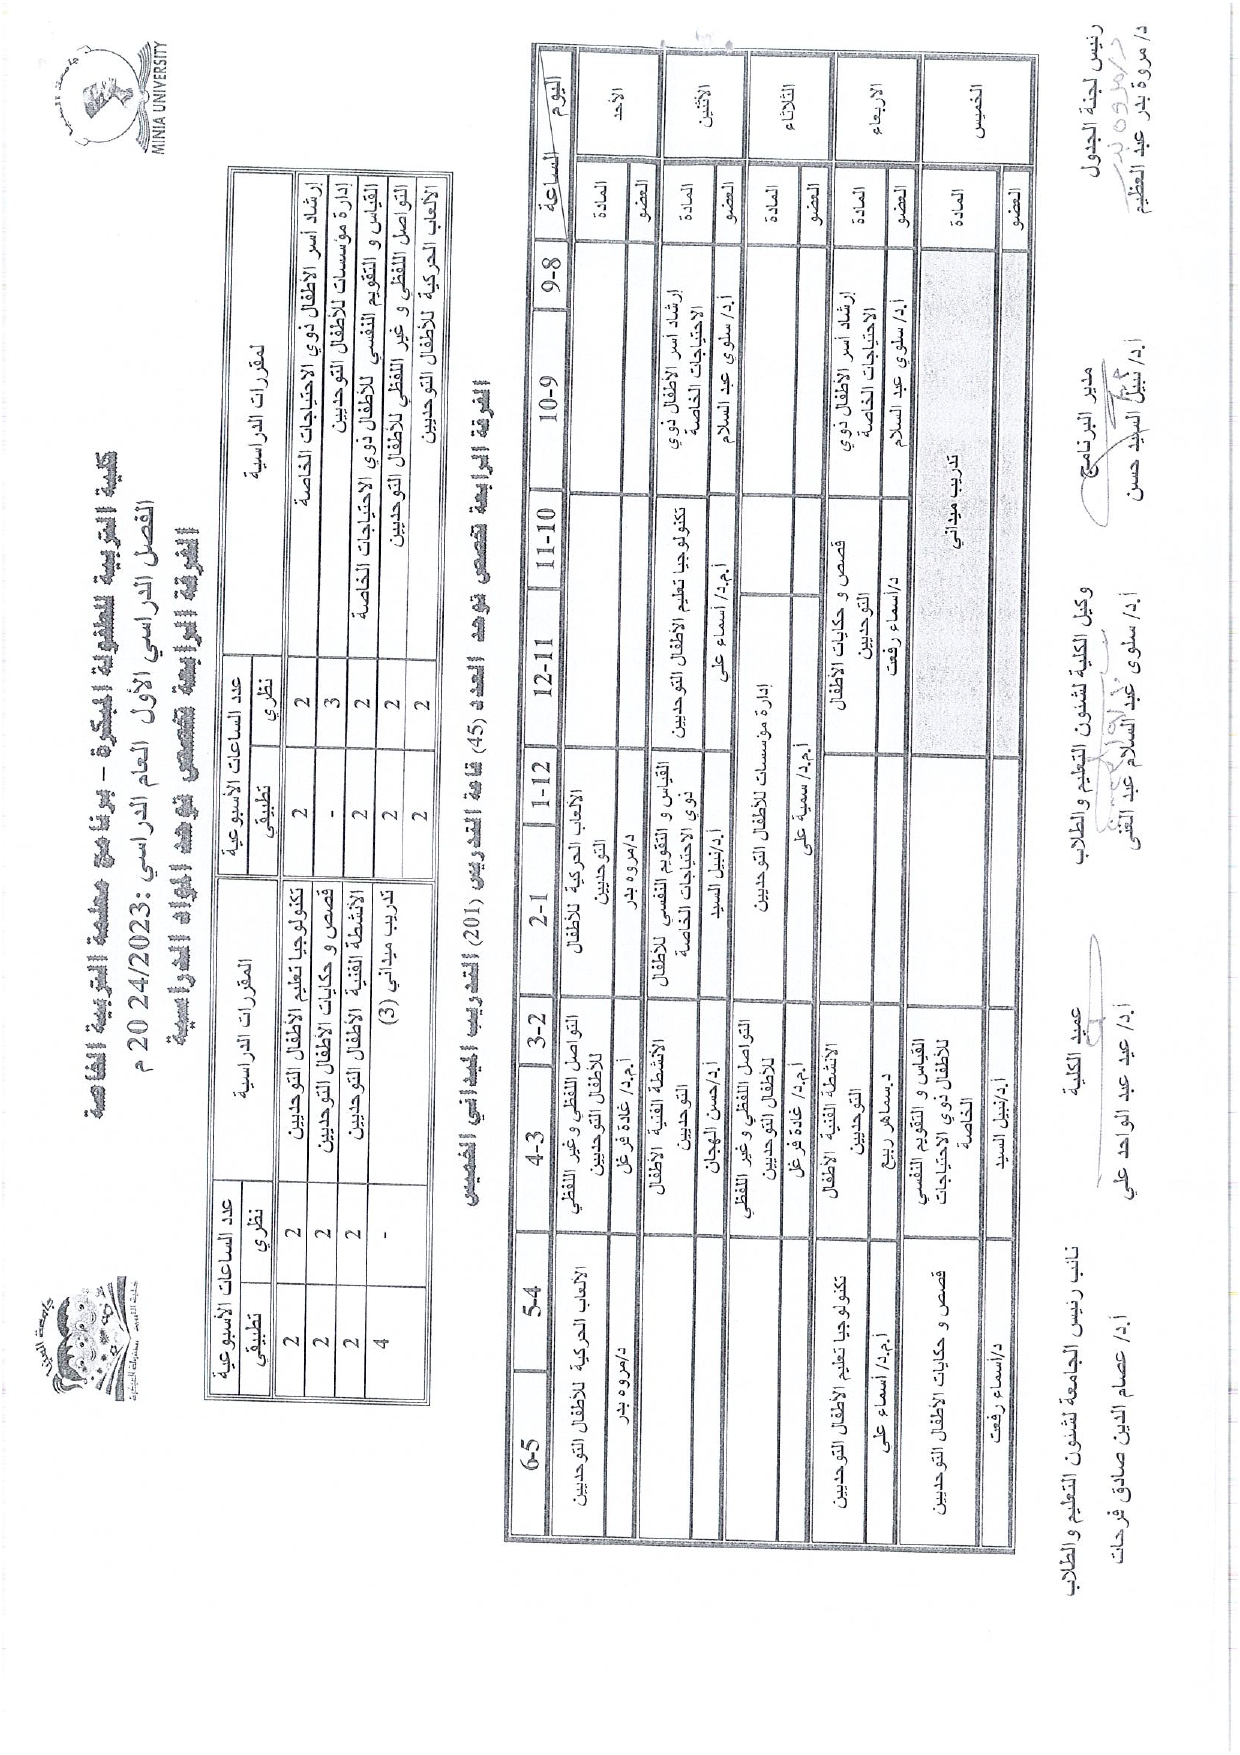 MINIA UNIVERSITY
كلية التربية للطفولة المبكرة – برنامج معلمة التربية الخاصة
الفصل الدراسي الأول العام الدراسي :2023/24 20 م
الفرقة الرابعة تخصص توحد المواد الدراسية
لمقررات الدراسية
عدد الساعات الأسبوعية
المقررات الدراسية
عدد الساعات الأسبوعية
نظري
تطبيقي
نظري
تطبيقي
إرشاد أسر الأطفال ذوي الاحتياجات الخاصة
2
2
تكنولوجيا تعليم الأطفال التوحديين
2
2
إدارة مؤسسات للأطفال التوحديين
3
-
قصص و حكايات الأطفال التوحديين
2
2
القياس و التقويم النفسي للأطفال ذوي الاحتياجات الخاصة
2
2
الأنشطة الفنية الأطفال التوحديين
2
2
التواصل اللفظي و غير اللفظي للأطفال التوحديين
2
2
تدريب ميداني (3)
-
4
الألعاب الحركية للأطفال التوحديين
2
2
الفرقة الرابعة تخصص توحد العدد (45) قاعة التدريس (201) التدريب الميداني الخميس
اليوم
الساعة
9-8
10-9
11-10
12-11
1-12
2-1
3-2
4-3
5-4
6-5
الأحد
المادة
الألعاب الحركية للأطفال
التوحديين
التواصل اللفظي وغير اللفظي
للأطفال التوحديين
الألعاب الحركية للأطفال التوحديين
العضو
د/مروه بدر
أ.م.د/ غادة فرغل
د/مروه بدر
الأثنين
المادة
إرشاد أسر الأطفال ذوي
الاحتياجات الخاصة
تكنولوجيا تعليم الأطفال التوحديين
القياس و التقويم النفسي للأطفال
ذوي الاحتياجات الخاصة
الأنشطة الفنية الأطفال
التوحديين
العضو
أ.د/ سلوي عبد السلام
أ.م.د/ أسماء على
أ.د/نبيل السيد
أ.د/حسن الهجان
الثلاثاء
المادة
إدارة مؤسسات للأطفال التوحديين
التواصل اللفظي و غير اللفظي
للأطفال التوحديين
العضو
أ.م.د/ سمية على
أ.م.د/ غادة فرغل
الاربعاء
المادة
إرشاد أسر الأطفال ذوي
الاحتياجات الخاصة
قصص و حكايات الأطفال
التوحديين
الأنشطة الفنية الأطفال
التوحديين
تكنولوجيا تعليم الأطفال التوحديين
العضو
أ.د/ سلوي عبد السلام
د/أسماء رفعت
د.سماهر ربيع
أ.م.د/ أسماء على
الخميس
المادة
تدريب ميداني
القياس و التقويم النفسي
للأطفال ذوي الاحتياجات
الخاصة
قصص و حكايات الأطفال التوحديين
العضو
أ.د/نبيل السيد
د/أسماء رفعت
رئيس لجنة الجدول
مدير البرنامج
وكيل الكلية لشئون التعليم والطلاب
عميد الكلية
نائب رئيس الجامعة لشئون التعليم والطلاب
د/مروه بدر
د/ مروة بدر عبد العظيم
أ.د/ نبيل السيد حسن
أ.د/ سلوى عبد السلام عبد الغنى
أ.د/ عيد عبد الواحد علي
أ.د/ عصام الدين صادق فرحات